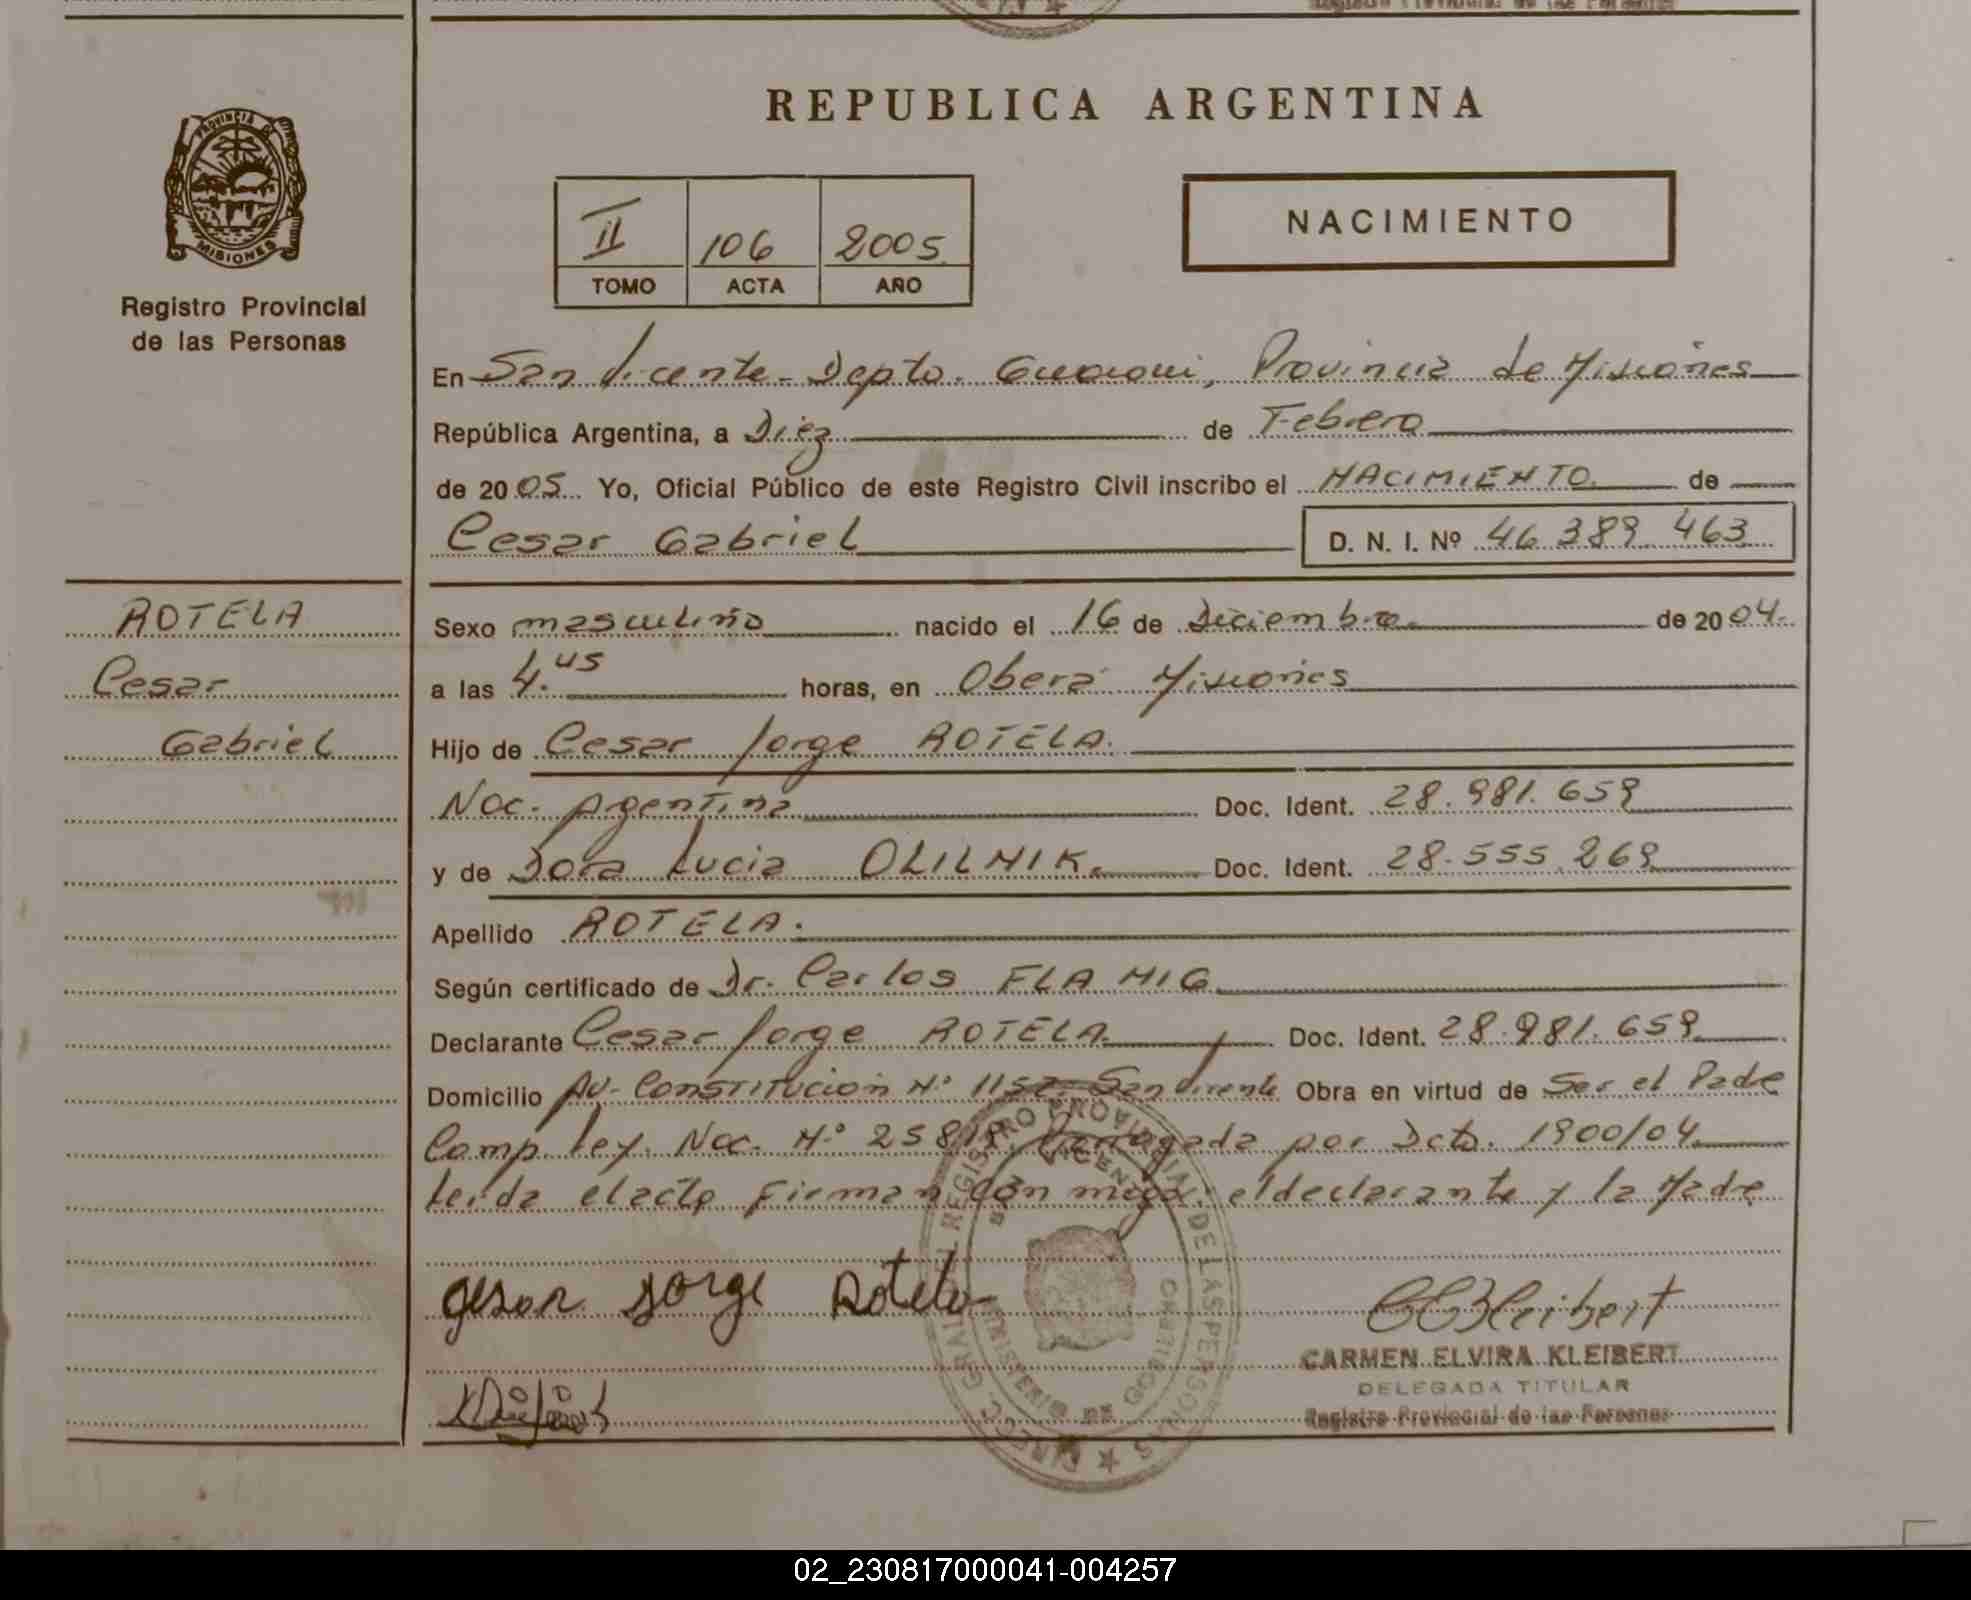 REPUBLICA ARGENTINA
PROVINCIA DE MISIONES
Registro Provincial
de las Personas
II 106 2005
TOMO ACTA AÑO
NACIMIENTO
En San Vicente - Depto. Guarani, Provincia de Misiones
República Argentina, a Diez de Febrero
de 2005 Yo, Oficial Público de este Registro Civil inscribo el NACIMIENTO de
Cesar Gabriel D. N. I. Nº 46 389 463
ROTELA
Cesar
Gabriel
Sexo masculino nacido el 16 de Diciembre de 2004.
a las 4.45 horas, en Oberá Misiones
Hijo de Cesar Jorge ROTELA.
Nac. Argentina Doc. Ident. 28.981.659
y de Dora Lucia OLILNIK. Doc. Ident. 28.555.269
Apellido ROTELA.
Según certificado de Dr. Carlos FLAMIG
Declarante Cesar Jorge ROTELA Doc. Ident. 28.981.659
Domicilio Av. Constitución Nº 1152 San Vicente Obra en virtud de Ser el Padre
Comp. ley. Nac. Nº 25819. Prorrogada por Dcto. 1900/04
Leida el acta Firman con migo: el declarante y la Madre
Cesar Jorge Rotela
CARMEN ELVIRA KLEIBERT
DELEGADA TITULAR
Registro Provincial de las Personas
DIREC. GRAL. REGISTRO PROVINCIAL DE LAS PERSONAS
MINISTERIO DE GOBIERNO
02_230817000041-004257